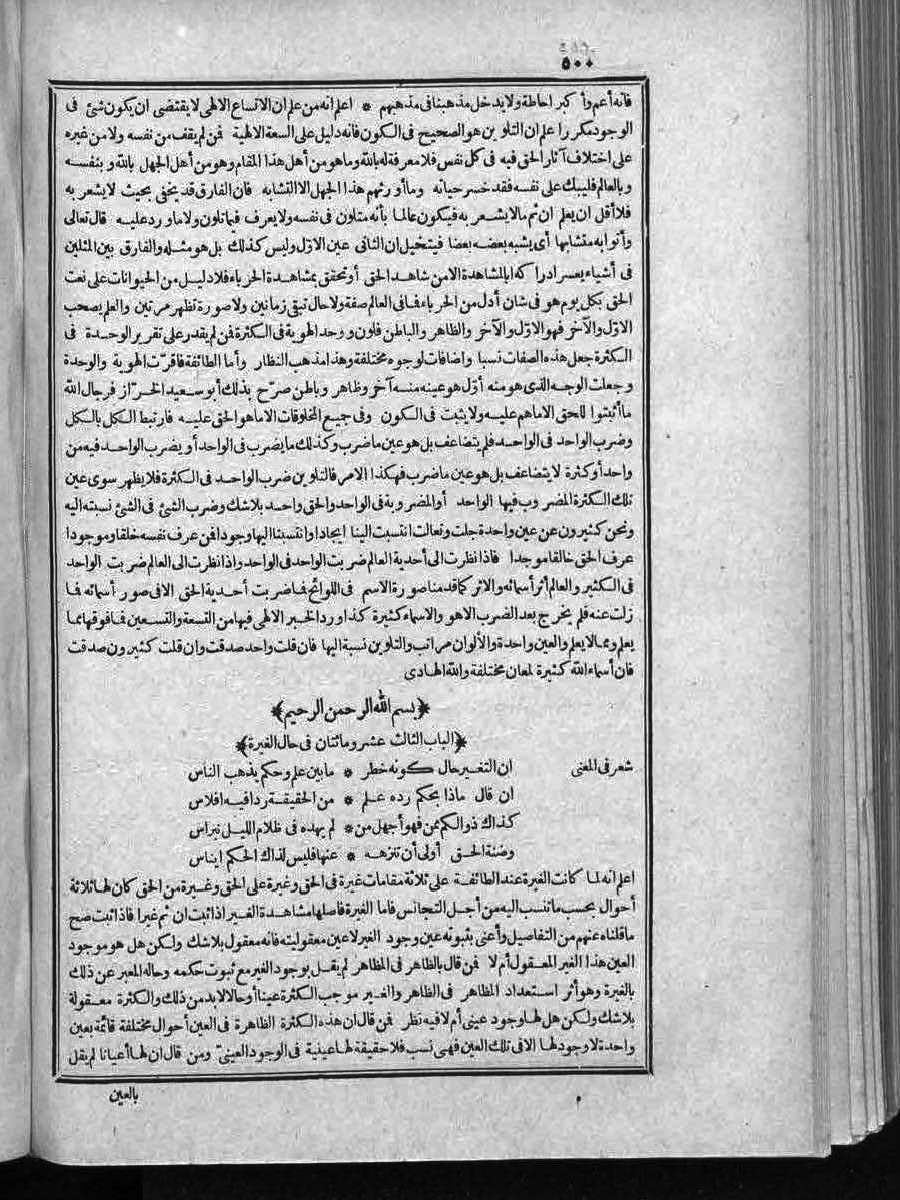 ٥٠٠
فانه أعم وأكبر احاطة ولا يدخل مذهبنا فى مذهبهم * اعلم انه من علم ان الاتساع الالهى لا يقتضى ان يكون شئ فى
الوجود مكررا علم ان التلوين هو الصحيح فى الكون فانه دليل على السعة الالهية فمن لم يقف من نفسه ولا من غيره
على اختلاف آثار الحق فيه فى كل نفس فلا معرفة له بالله وما هو من أهل هذا المقام وهو من أهل الجهل بالله وبنفسه
وبالعالم فليبك على نفسه فقد خسر حياته وما أورثهم هذا الجهل الا التشابه فان الفارق قد يخفى بحيث لا يشعر به
فلا أقل ان يعلم ان ثم مالا يشعر به فيكون عالما بأنه متلون فى نفسه ولا يعرف فيما تلون ولا ما ورد عليه قال تعالى
وأتوا به متشابها أى يشبه بعضه بعضا فيتخيل ان الثانى عين الاول وليس كذلك بل هو مثله والفارق بين المثلين
فى أشياء يعسر ادراكه بالمشاهدة الا من شاهد الحق أو تحقق بمشاهدة الحرباء فلا دليل من الحيوانات على نعت
الحق بكل يوم هو فى شان أدل من الحرباء فما فى العالم صفة ولا حال تبقى زمانين ولا صورة تظهر مرتين والعلم يصحب
الاول والآخر فهو الاول والآخر والظاهر والباطن فلون ووحد الهوية فى الكثرة فمن لم يقدر على تقرير الوحدة فى
الكثرة جعل هذه الصفات نسبا واضافات لوجوه مختلفة وهذا مذهب النظار وأما الطائفة فاقرت الهوية والوحدة
وجعلت الوجه الذى هو منه أول هو عينه منه آخر وظاهر وباطن صرح بذلك أبو سعيد الخراز فرجال الله
ما أثبتوا للحق الا ماهم عليه ولا يثبت فى الكون وفى جميع المخلوقات الا ما هو الحق عليه فارتبط الكل بالكل
وضرب الواحد فى الواحد فلم يتضاعف بل هو عين ما ضرب وكذلك ما يضرب فى الواحد أو يضرب الواحد فيه من
واحد أو كثرة لا يتضاعف بل هو عين ما ضرب فهكذا الامر فالتلوين ضرب الواحد فى الكثرة فلا يظهر سوى عين
تلك الكثرة المضروب فيها الواحد أو المضروبة فى الواحد والحق واحد بلا شك وضرب الشئ فى الشئ نسبته اليه
ونحن كثيرون عن عين واحدة جلت وتعالت انتسبت الينا ايجادا وانتسبنا اليها وجودا فمن عرف نفسه خلقا وموجودا
عرف الحق خالقا موجدا فاذا نظرت الى أحدية العالم ضربت الواحد فى الواحد واذا نظرت الى العالم ضربت الواحد
فى الكثير والعالم أثر أسمائه والاثر كما قدمنا صورة الاسم فى اللوائح فما ضربت أحدية الحق الا فى صور أسمائه فما
زلت عنه فلم يخرج بعد الضرب الا هو والاسماء كثيرة كذا ورد الخبر الالهى فيها من التسعة والتسعين فما فوقها مما
يعلم ومما لا يعلم والعين واحدة والألوان مراتب والتلوين نسبة اليها فان قلت واحد صدقت وان قلت كثيرون صدقت
فان أسماء الله كثيرة لمعان مختلفة والله الهادى
﴿بسم الله الرحمن الرحيم﴾
﴿الباب الثالث عشر ومائتان فى حال الغيرة﴾
شعر فى المعنى
ان التغير حال كونه خطر * ما بين علم وحكم يذهب الناس
ان قال ماذا بحكم رده علم * من الحقيقة ردا فيه افلاس
كذاك ذو الكم من فهو أجهل من * لم يهده فى ظلام الليل نبراس
وضنة الحق أولى أن تنزهه * عنها فليس لذاك الحكم ايناس
اعلم انه لما كانت الغيرة عند الطائفة على ثلاثة مقامات غيرة فى الحق وغيرة على الحق وغيرة من الحق كان لها ثلاثة
أحوال بحسب ما تنسب اليه من أجل التجانس فاما الغيرة فاصلها مشاهدة الغير اذا ثبت ان ثم غيرا فاذا ثبت صح
ما قلناه عنهم من التفاصيل وأعنى بثبوته عين وجود الغير لا عين معقوليته فانه معقول بلا شك ولكن هل هو موجود
العين هذا الغير المعقول أم لا فمن قال بالظاهر فى المظاهر لم يقل بوجود الغير مع ثبوت حكمه وحاله المعبر عن ذلك
بالغيرة وهو أثر استعداد المظاهر فى الظاهر والغير موجب الكثرة عينا أو حالا لابد من ذلك والكثرة معقولة
بلا شك ولكن هل لها وجود عينى أم لا فيه نظر فمن قال ان هذه الكثرة الظاهرة فى العين أحوال مختلفة قائمة بعين
واحدة لا وجود لها الا فى تلك العين فهى نسب فلا حقيقة لها عينية فى الوجود العينى ومن قال ان لها أعيانا لم يقل
بالعين